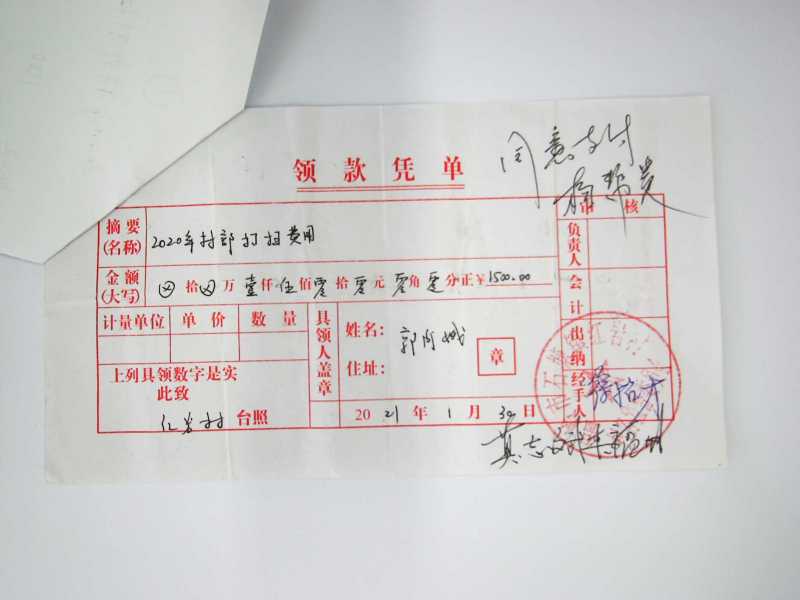 领款凭单
同意支付
审核
摘要(名称) 2020年村部打扫费用
负责人
金额(大写) 拾 万 壹仟伍佰零拾零元零角零分正¥1500.00
会计
计量单位 单价 数量
具领人盖章
姓名: 郭阿娥
住址:
章
出纳
上列具领数字是实
此致
红岩村 台照
经手人
2021年1月30日